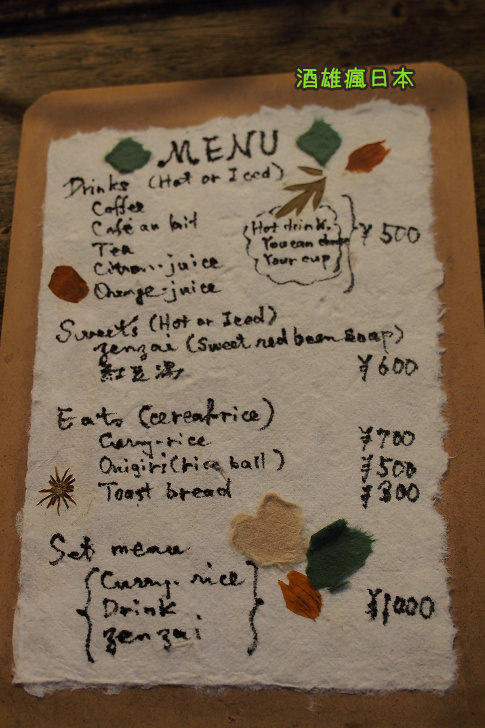 酒雄瘋日本
MENU
Drinks (Hot or Iced)
Coffee
Café au lait
Tea
Citron-juice
Orenge-juice
Hot drink.
You can chose
Your cup
¥500
Sweets (Hot or Iced)
zenzai (Sweet red been Soap)
紅豆湯
¥600
Eats (cereal・rice)
Curry-rice ¥700
Onigiri (rice ball) ¥500
Toast bread ¥300
Set menu
Curry. rice
Drink
zenzai
¥1000